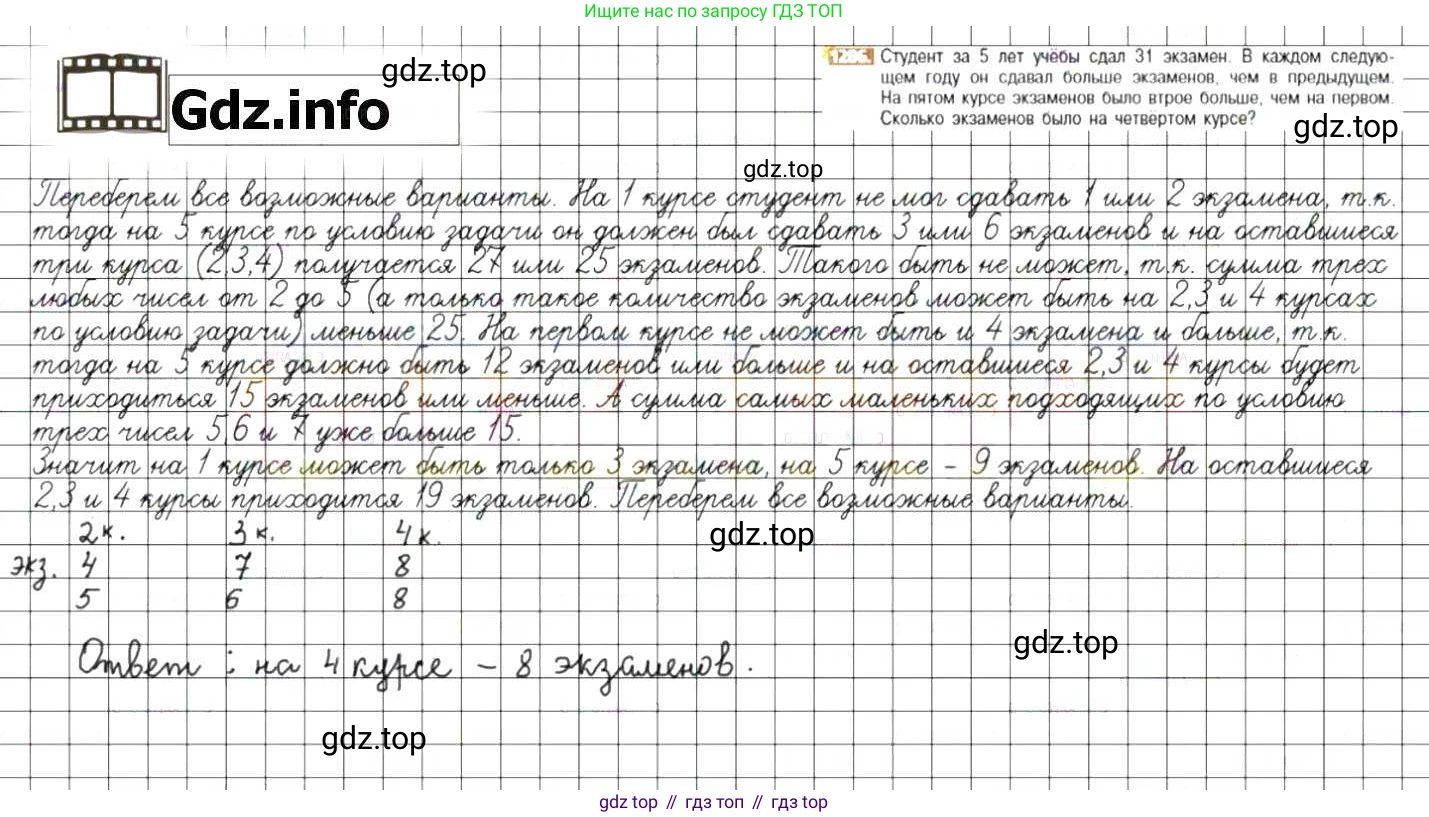 Ищите нас по запросу ГДЗ ТОП
gdz.top
Gdz.info
1286. Студент за 5 лет учёбы сдал 31 экзамен. В каждом следую-
щем году он сдавал больше экзаменов, чем в предыдущем.
На пятом курсе экзаменов было втрое больше, чем на первом.
Сколько экзаменов было на четвёртом курсе?
gdz.top
gdz.top
Переберем все возможные варианты. На 1 курсе студент не мог сдавать 1 или 2 экзамена, т.к.
тогда на 5 курсе по условию задачи он должен был сдавать 3 или 6 экзаменов и на оставшиеся
три курса (2,3,4) получается 27 или 25 экзаменов. Такого быть не может, т.к. сумма трех
любых чисел от 2 до 5 (а только такое количество экзаменов может быть на 2,3 и 4 курсах
по условию задачи) меньше 25. На первом курсе не может быть и 4 экзамена и больше, т.к.
тогда на 5 курсе должно быть 12 экзаменов или больше и на оставшиеся 2,3 и 4 курсы будет
приходиться 15 экзаменов или меньше. А сумма самых маленьких подходящих по условию
трех чисел 5,6 и 7 уже больше 15.
Значит на 1 курсе может быть только 3 экзамена, на 5 курсе - 9 экзаменов. На оставшиеся
2,3 и 4 курсы приходится 19 экзаменов. Переберем все возможные варианты.
2к. 3к. 4к.
gdz.top
экз. 4 7 8
5 6 8
Ответ : на 4 курсе - 8 экзаменов.
gdz.top
gdz.top
gdz top // гдз топ // gdz top